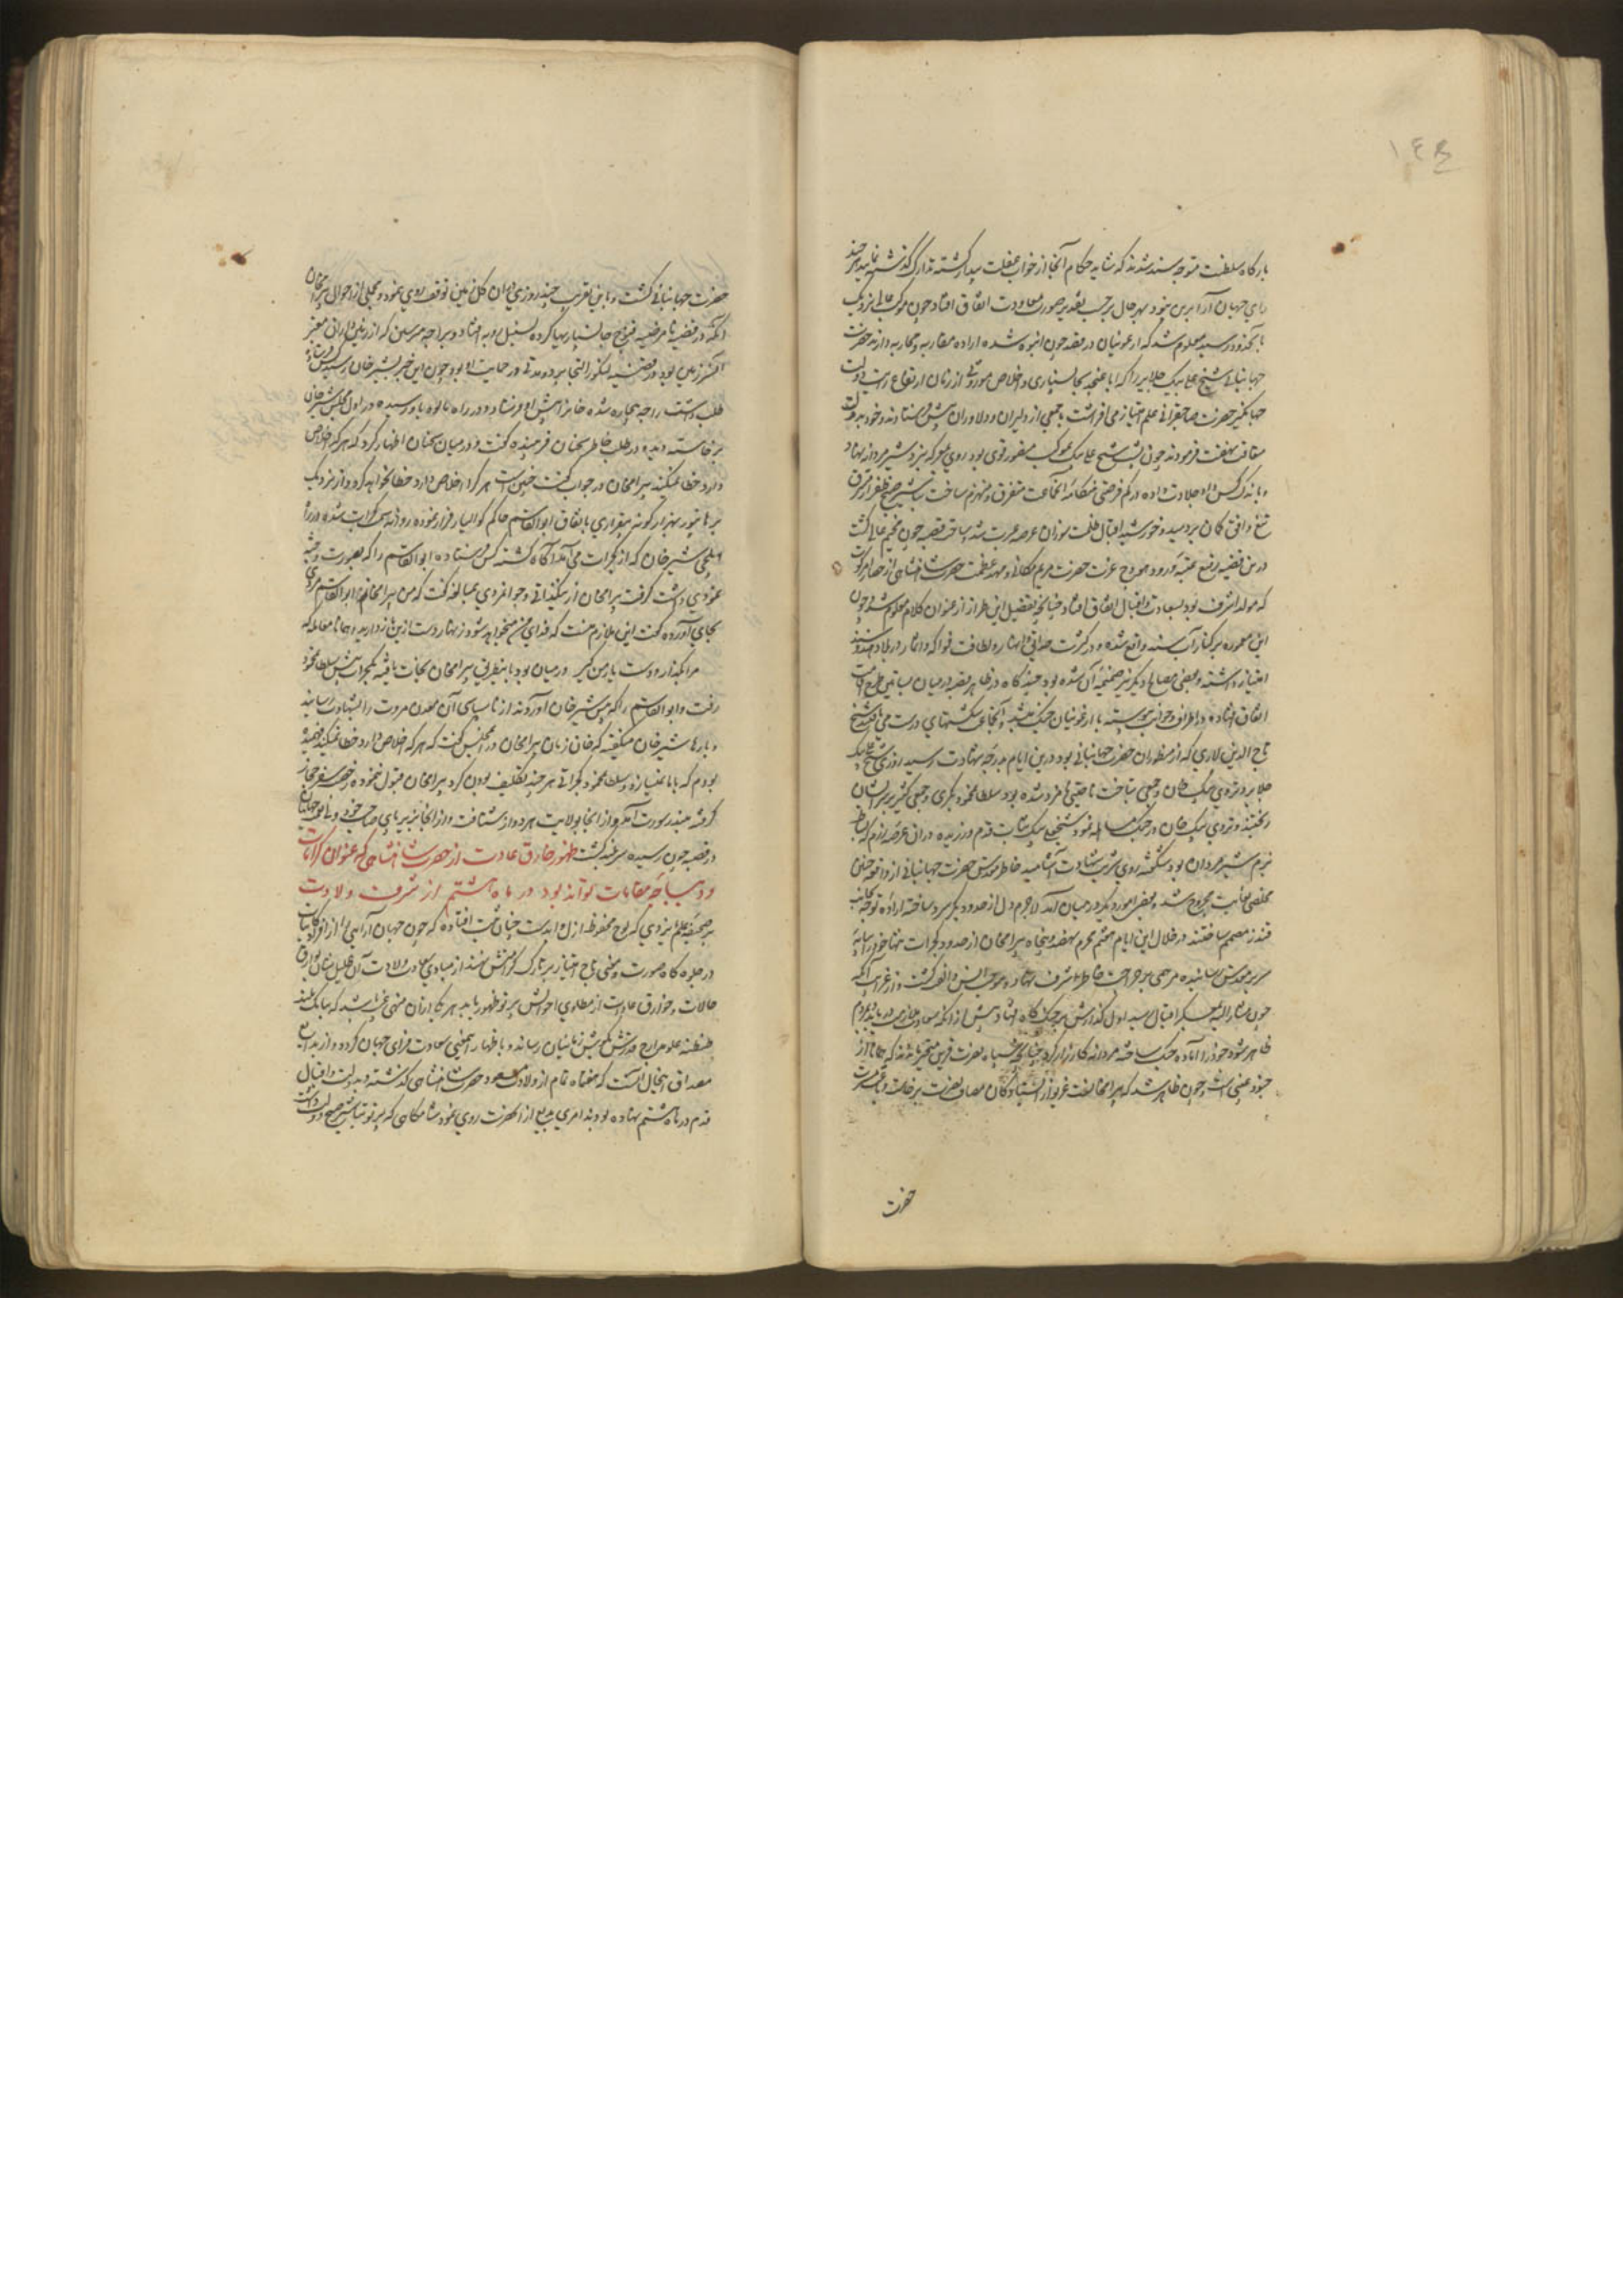 ۱۴۴
بارگاه سلطنت متوجه سند شدند که شاید حکام آنجا از خواب غفلت بیدار گشته تدارک گذشته نمایند هر چند
رای جهان آرا برین نبود بهر حال بر حسب تقدیر صورت معاودت اتفاق افتاد چون موکب عالی نزدیک
بآنحدود رسید معلوم شد که ارغونیان در قصبه جون انبوه شده اراده مقابله و محاربه دارند حضرت
جهانبانی شیخ علی بیک جلایر را که ابا عن جد بجانسپاری و اخلاص موروثی از زمان ارتفاع رایت دولت
جهانگیر حضرت صاحبقرانی علم امتیاز می افراشت با جمعی از دلیران و دلاوران پیش فرستادند و خود بدولت
متعاقب نهضت فرمودند چون پشت شیخ علی بیک بموکب منصور قوی بود روی بمعرکه نبرد شیر مردانه نهاد
و باندک کس داد جلادت داده در کم فرصتی هنگامه آنجماعت متفرق و منهزم ساخت تباشیر صبح ظفر از مشرق
تیغ و افق کمان بردمید و خورشید اقبال ظلمت سوز آن عرصه عبرت شد ساحت قصبه جون مخیم عالی گشت
درین قصبه رفیع عتبه ورود هودج عزت حضرت مریم مکانی و مهد عظمت حضرت شاهنشاهی از حصار امرکوت
که مولد اشرف بود بسعادت و اقبال اتفاق افتاد چنانچه تفصیل این طراز از عنوان کلام معلوم شد و چون
این معموره بر کنار آب سند واقع شده و در کثرت حدائق و انهار و لطافت فواکه و اثمار در بلاد سند
امتیاز داشته و بعضی مصالح دیگر نیز ضمیمه آن شده بود چند گاه در ظاهر قصبه در میان بساتین طرح اقامت
اتفاق افتاده در اطراف و جوانب پیوسته با ارغونیان جنگ میشد و آنجماعت شکستهای درست می یافتند شیخ
تاج الدین لاری که از منظوران حضرت جهانبانی بود درین ایام بدرجه شهادت رسید روزی شیخ علی بیک
جلایر و تردی بیک خان و جمعی بتاخت ناحیتی نامزد شده بود سلطان محمود بکری و جمعی کثیر بر سر ایشان
ریختند و تردی بیک خان در جنگ مساهله نمود شیخ علی بیک ثبات قدم ورزیده در آن عرصه رزم که بساط
بزم شیر مردان بود شکفته روی شربت شهادت آشامید خاطر مقدس حضرت جهانبانی از واقعه چنین
مخلصی بغایت مجروح شد و بعضی امور دیگر در میان آمد لاجرم دل از حدود بکر سرد ساخته اراده توجه بجانب
قندز مصمم ساختند در خلال این ایام هفتم محرم نهصد و پنجاه بیرامخان از حدود گجرات تنها خود را بپایه
سریر مقدس رسانیده مرهمی بر جراحت خاطر اشرف نهاد و موجب انس و الفت گشت و از غرایب آنکه
چون مشار الیه بعسکر اقبال رسید اول گذارش بر جنگ گاه افتاد پیش از آنکه سعادت ملازمت دریابد و بمردم
ظاهر شود خود را آماده جنگ ساخته مردانه کارزار کرد چنانچه سپاه نصرت قرین متحیر ماندند که همانا از
جنود غیبی است چون ظاهر شد که بیرامخان است غریو از ایستادگان مصاف نصرت برخاست و باعث مسرت
حضرت
حضرت جهانبانی گشت و باین تقریب چند روزی در آن گل زمین توقف روی نمود و مجملی از احوال بیرامخان
آنکه در قضیه نامرضیه قنوج جانسپاریها کرده بسنبل رویه افتاد و براجه مترسین که از زمینداران معتبر
آن سرزمین بود در قصبه لکنور التجا برد و مدتی در حمایت او بود چون این خبر بشیرخان رسید کس فرستاده
طلب داشت راجه بیچاره شده خانرا پیش او فرستاد و در راه مالوه باو رسیده در اول مجلس شیرخان
برخاسته دیده و در طلب خاطر سخنان فریبنده گفت و در میان سخنان اظهار کرد که هر که اخلاص
دارد خطا نمیکند بیرامخان در جواب گفت چنین است هر که اخلاص دارد خطا نخواهد کرد و از نزدیک
برهانپور بهزار گونه بیقراری باتفاق ابوالقاسم حاکم گوالیار فرار نموده روانه گجرات شد در راه
ایلچی شیرخان که از گجرات می آمد آگاه گشته کس فرستاده ابوالقاسم را که بصورت وجثه
نمودی داشت گرفت بیرامخان از نیکذاتی و جوانمردی بمبالغه گفت که من بیرامخانم ابوالقاسم مردمی
بجای آورده گفت این ملازم منست که فدای من میخواهد شود زنهار دست ازین باز دارید و همانا مقاله
مرا بگذار و دست یار من گیر در میان بود باینطریق بیرامخان نجات یافته بگجرات پیش سلطان محمود
رفت و ابوالقاسم را که پیش شیرخان آوردند از ناسپاسی آن معدن مروت را بشهادت رسانید
و بارها شیرخان میگفته که همان زمان بیرامخان در مجلس گفت که هر که اخلاص دارد خطا نمیکند فهمیده
بودم که با ما نمیسازد و سلطان محمود گجراتی هر چند تکلیف بودن کرد بیرامخان قبول ننموده رخصت سفر حجاز
گرفته ببندر سورت آمد و از آنجا بولایت هردوار شتافت و از آنجا نیز بپای
در قصبه جون رسیده سربلند گشت ظهور خارق عادت از حضرت شاهنشاهی که عنوان کرامات
و دیباجه مقامات تواند بود در ماه هشتم از شرف ولادت
بر صحیفه علم ایزدی که لوح محفوظ ازل و ابدست چنان ثبت افتاده که چون جهان آرایی را از افراد کاینات
در جلوه گاه صورت و معنی تاج امتیاز بر تارک گرامیش نهند از مبادی سعادت ولادت آن جلیل بدایع
حالات و خوارق عادات از مطاوی احوالش پرتو ظهور یابد هر یک از آن منهی غیب باشد که ببانگ بلند
طنطنه علو مدارج قدرش بگوش زمانیان رساند و باظهار اینمعنی سعادت افزای جهان گردد و از بدایع
مصداق اینحال آنست که هفت ماه تمام از ولادت مسعود حضرت شاهنشاهی گذشته و بدولت و اقبال
قدم در ماه هشتم نهاده بودند امری بدیع از آنحضرت روی نمود شامگاهی که پرتو تباشیر صبح دولت داشت